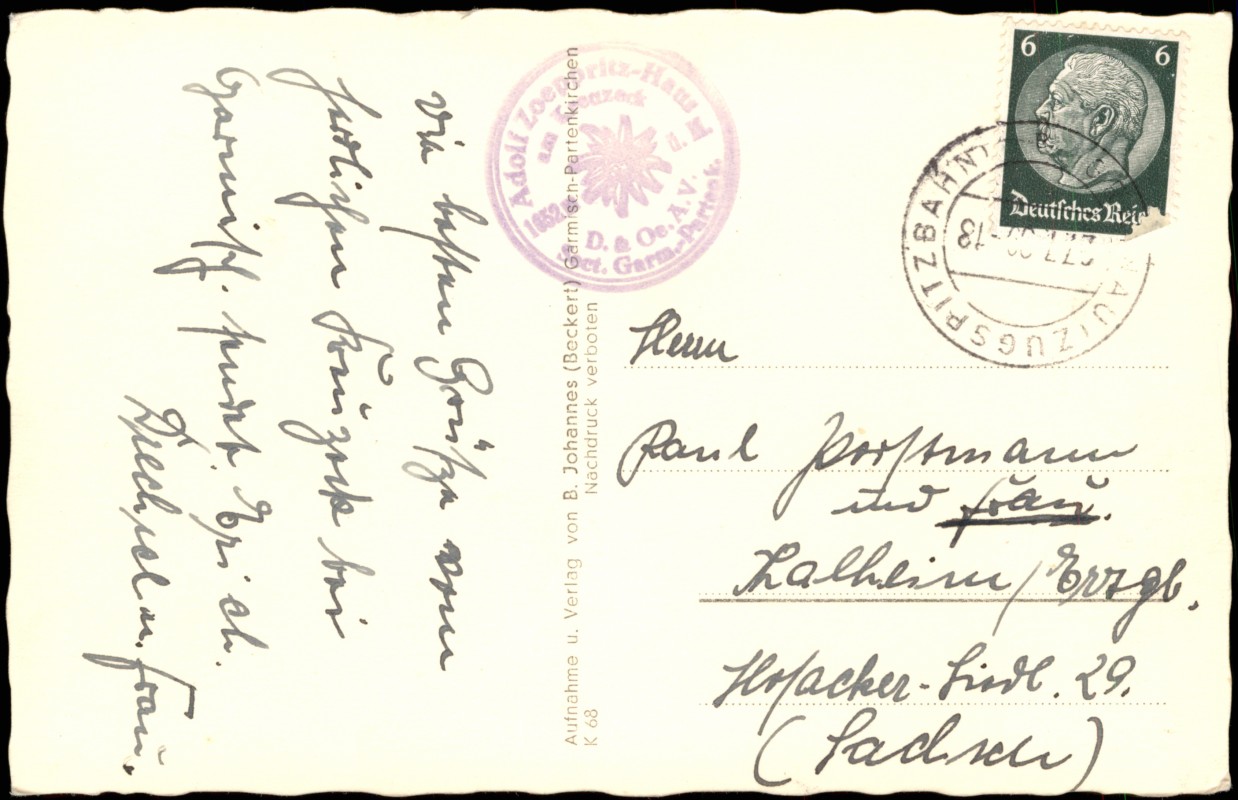 Die besten Grüße vom
herrlichen Kreuzeck bei
Garmisch. sendet. Erich.
u. Frau.
Adolf Zoeppritz-Haus
am Kreuzeck
1652 ü. M.
D. & Oe. A. V.
Sect. Garm.-Partenk.
Aufnahme u. Verlag von B. Johannes (Beckert) Garmisch-Partenkirchen
Nachdruck verboten
K 68
6 6
Deutsches Rei
ZUGSPITZBAHN
Herrn
Paul Porstmann
und Frau.
Thalheim / Erzgb.
Hofacker-Siedl. 29.
(Sachsen)